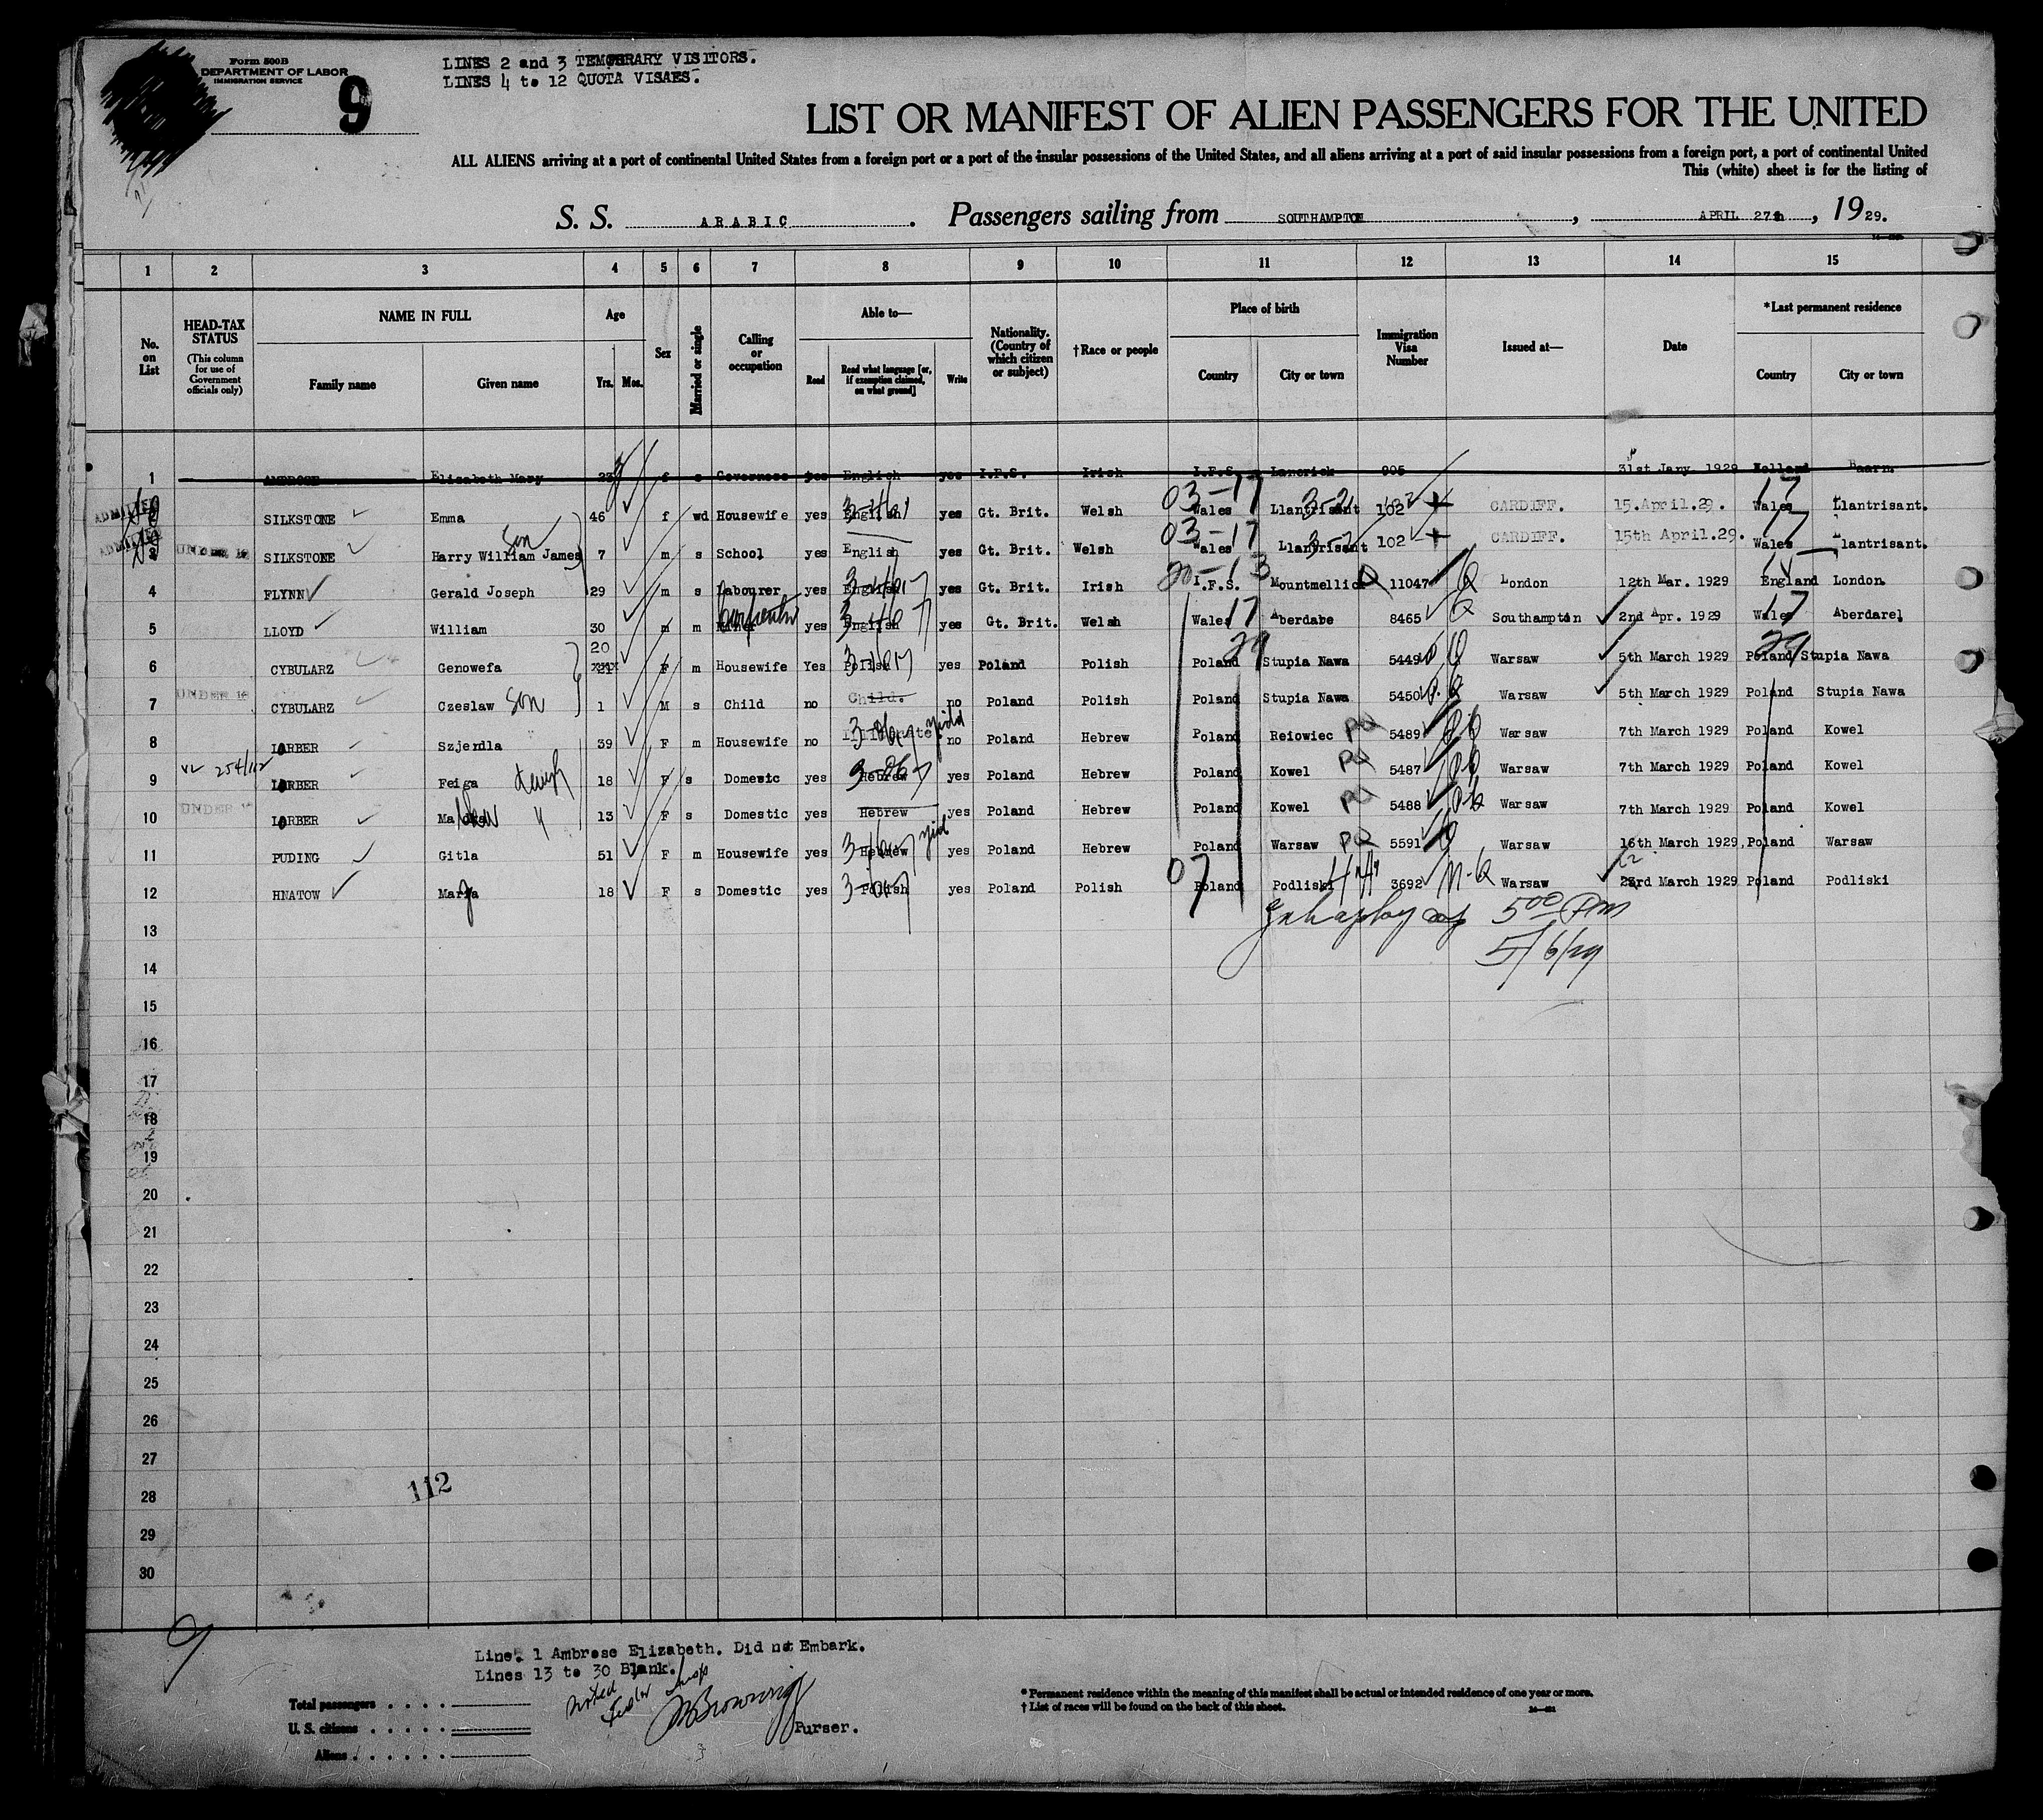 Form 500B
DEPARTMENT OF LABOR
IMMIGRATION SERVICE
9
LINES 2 and 3 TEMPORARY VISITORS.
LINES 4 to 12 QUOTA VISAES.
LIST OR MANIFEST OF ALIEN PASSENGERS FOR THE UNITED
ALL ALIENS arriving at a port of continental United States from a foreign port or a port of the insular possessions of the United States, and all aliens arriving at a port of said insular possessions from a foreign port, a port of continental United
This (white) sheet is for the listing of
S. S. ARABIC . Passengers sailing from SOUTHAMPTON , APRIL 27th , 1929.
1 2 3 4 5 6 7 8 9 10 11 12 13 14 15
No. on List
HEAD-TAX STATUS
(This column for use of Government officials only)
NAME IN FULL
Family name Given name
Age
Yrs. Mos.
Sex
Married or single
Calling or occupation
Able to—
Read Read what language [or, if exemption claimed, on what ground] Write
Nationality. (Country of which citizen or subject)
†Race or people
Place of birth
Country City or town
Immigration Visa Number
Issued at—
Date
*Last permanent residence
Country City or town
1 AMBROSE Elizabeth Mary 23 f s Governess yes English yes I.F.S. Irish I.F.S. Lemerick 905 31st Jany. 1929 Holland Baarn
ADMITTED 2 SILKSTONE Emma 46 f wd Housewife yes English yes Gt. Brit. Welsh 03-17 Wales Llantrisant 102 CARDIFF. 15.April.29. 17 Wales Llantrisant.
ADMITTED 3 UNDER 16 SILKSTONE Harry William James Son 7 m s School yes English yes Gt. Brit. Welsh 03-17 Wales Llantrisant 102 CARDIFF. 15th April.29. 17 Wales Llantrisant.
4 FLYNN Gerald Joseph 29 m s Labourer yes English yes Gt. Brit. Irish I.F.S. Mountmellick 11047 Q London 12th Mar. 1929 England London
5 LLOYD William 30 m m Miner Carpenter yes English yes Gt. Brit. Welsh Wales 17 Aberdabe 8465 Q Southampton 2nd Apr. 1929 Wales 17 Aberdare
6 CYBULARZ Genowefa 20 21 F m Housewife Yes Polish yes Poland Polish Poland 29 Stupia Nawa 5449 Warsaw 5th March 1929 Poland 29 Stupia Nawa
UNDER 16
7 CYBULARZ Czeslaw Son 1 M s Child no Child. no Poland Polish Poland Stupia Nawa 5450 Warsaw 5th March 1929 Poland Stupia Nawa
8 LERBER Szjendla 39 F m Housewife no Illiterate no Poland Hebrew Poland Reiowiec PQ 5489 Warsaw 7th March 1929 Poland Kowel
9 LERBER Feiga daugh 18 F s Domestic yes Hebrew yes Poland Hebrew Poland Kowel PQ 5487 Warsaw 7th March 1929 Poland Kowel
UNDER 16
10 LERBER 13 F s Domestic yes Hebrew yes Poland Hebrew Poland Kowel PQ 5488 Warsaw 7th March 1929 Poland Kowel
11 PUDING Gitla 51 F m Housewife yes Hebrew yes Poland Hebrew Poland Warsaw PQ 5591 Warsaw 16th March 1929, Poland Warsaw
12 HNATOW Marja 18 F s Domestic yes Polish yes Poland Polish 07 Poland Podliski 3692 N-Q Warsaw 23rd March 1929 Poland Podliski
13 5 00 Pm
5/6/29
14
15
16
17
18
19
20
21
22
23
24
25
26
27
28
112
29
30
Line. 1 Ambrose Elizabeth. Did not Embark.
Lines 13 to 30 Blank.
Noted
Browning
Purser.
Total passengers
U. S. citizens
Aliens
* Permanent residence within the meaning of this manifest shall be actual or intended residence of one year or more.
† List of races will be found on the back of this sheet.